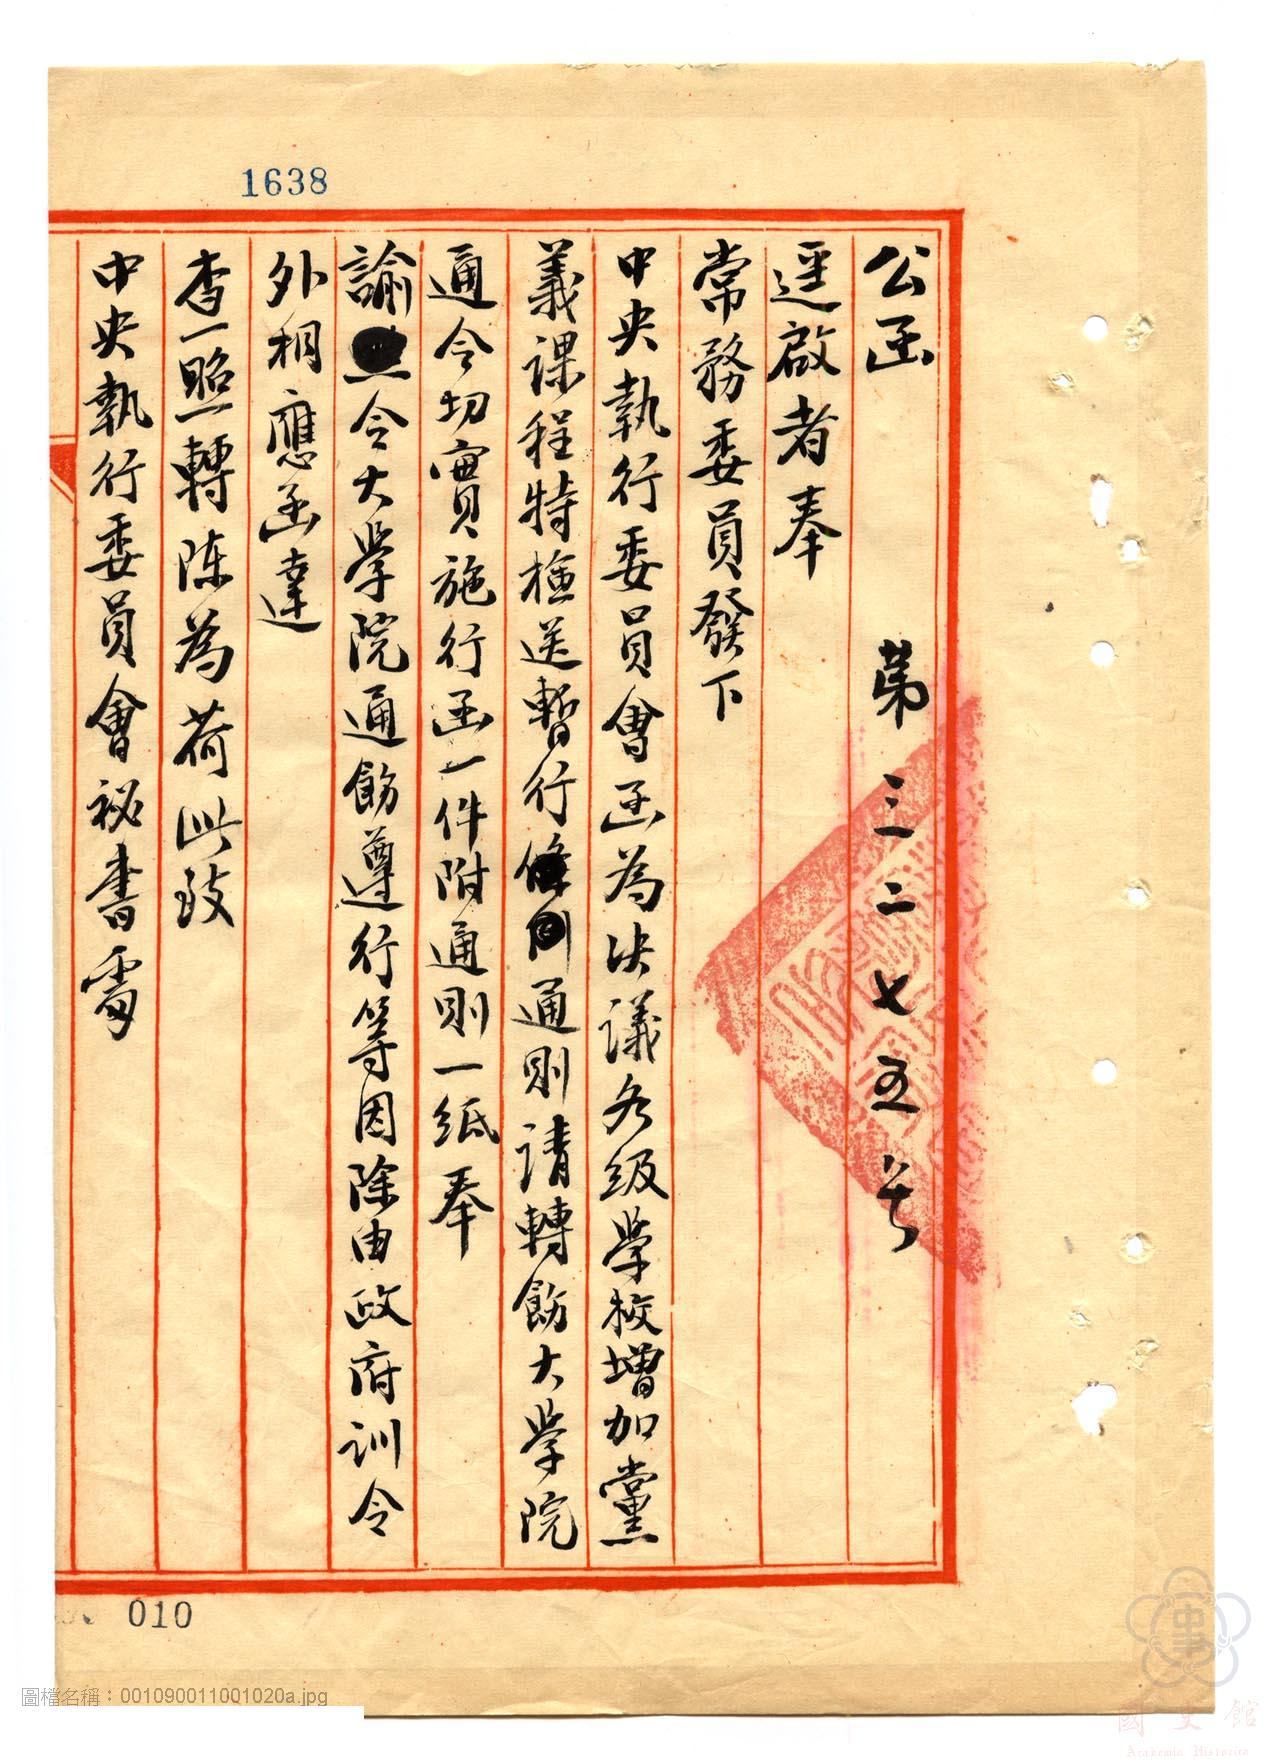 1638
公函　第三二七五号
逕啟者奉
常務委員發下
中央執行委員會函為决議各級學校增加黨
義課程特檢送暫行條例通則請轉飭大學院
通令切實施行函一件附通則一紙奉
諭令大學院通飭遵行等因除由政府訓令
外相應函達
查照轉陳為荷此致
中央執行委員會祕書處
010
圖檔名稱：001090011001020a.jpg
國史館
Academia Historica